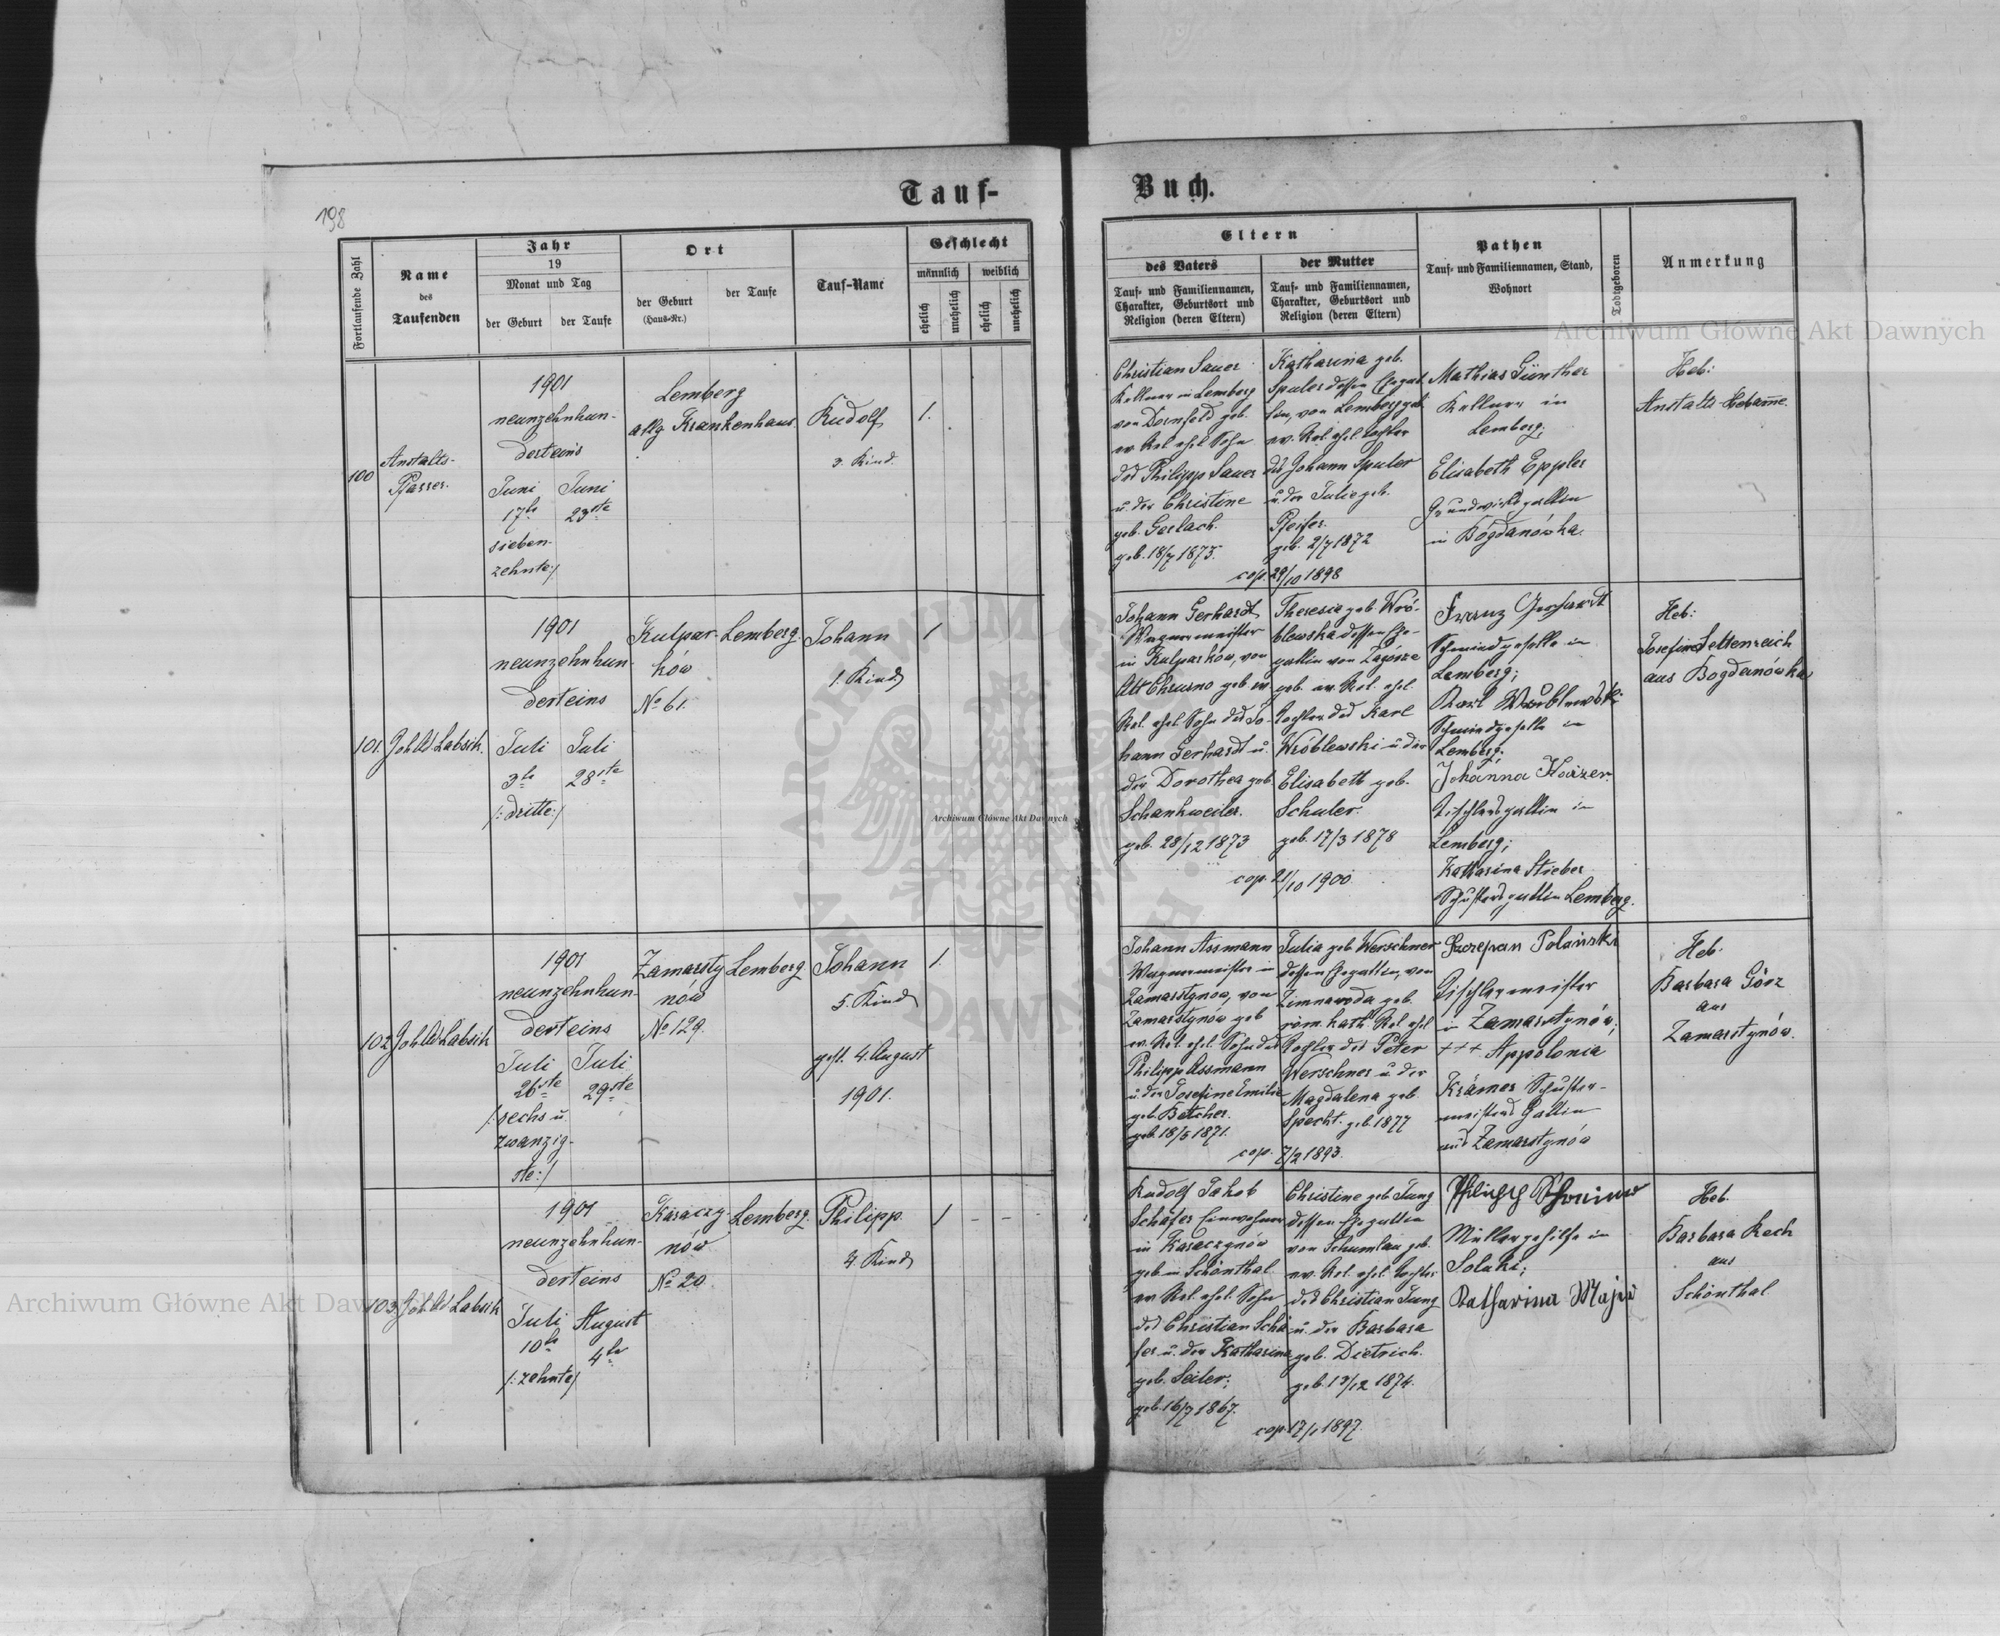 Tauf-
Buch.
198
Fortlaufende Zahl
Name
des
Taufenden
Jahr
19
Monat und Tag
der Geburt
der Taufe
Ort
der Geburt
(Haus-Nr.)
der Taufe
Tauf-Name
Geschlecht
männlich
weiblich
ehelich
unehelich
ehelich
unehelich
Eltern
des Vaters
Tauf- und Familiennamen,
Charakter, Geburtsort und
Religion (deren Eltern)
der Mutter
Tauf- und Familiennamen,
Charakter, Geburtsort und
Religion (deren Eltern)
Pathen
Tauf- und Familiennamen, Stand,
Wohnort
Todtgeboren
Anmerkung
100
Anstalts-
Pfarrer.
1901
neunzehnhun-
derteins
Juni
17te
sieben-
zehnte:/
Juni
23ste
Lemberg
allg Krankenhaus
Rudolf
3. Kind.
1.
Christian Sauer
Kellner in Lemberg
von Dornfeld geb.
ev Rel ehel Sohn
des Philipp Sauer
u. der Christine
geb. Gerlach.
geb. 18/7 1875.
Katharina geb.
Spuler dessen Ehegat
tin, von Lemberg geb.
ev. Rel. ehel Tochter
des Johann Spuler
u. der Julie geb.
Pfeifer.
geb. 2/7 1872
cop. 29/10 1898
Mathias Günther
Kellner in
Lemberg;
Elisabeth Eppler
Grundwirtsgattin
in Bogdanówka.
Heb:
Anstalts-Hebamme.
101.
Joh Ud Labsik.
1901
neunzehnhun-
derteins
Juli
3te
/:dritte:/
Juli
28ste
Kulpar-
ków
No 61.
Lemberg.
Johann
1. Kind
1
Johann Gerhardt
Wagnermeister
in Kulparków, von
Alt Chrusno geb. ev
Rel. ehel Sohn des Jo-
hann Gerhardt u.
der Dorothea geb.
Schankweiler.
geb. 28/12 1873
Theresie geb. Wró-
blewska dessen Ehe-
gattin von Zagórze
geb. ev. Rel. ehel.
Tochter des Karl
Wróblewski u. der
Elisabeth geb.
Schuler.
geb. 17/3 1878
cop. 21/10 1900
Franz Gerhardt
Schmiedgeselle in
Lemberg;
Karl
Schmiedgeselle in
Lemberg.
Johanna
Tischlersgattin in
Lemberg;
Katharina Stieber
Schustersgattin Lemberg.
Heb:
Josefine
aus Bogdanówka
102
Joh Ud Labsik
1901
neunzehnhun-
derteins
Juli
26ste
/:sechs u.
zwanzig-
ste:/
Juli
29ste
Zamarsty
nów
No 129.
Lemberg
Johann
5. Kind
gest. 4. August
1901.
1.
Johann Assmann
Wagnermeister in
Zamarstynów, von
Zamarstynów geb
ev. Rel. ehel. Sohn des
Philipp Assmann
u. der Josefine Emilie
geb. Betcher.
geb. 18/5 1871.
Julia geb. Werschner
dessen Ehegattin, von
Zimnawoda geb.
röm. kath. Rel. ehel
Tochter des Peter
Werschner u. der
Magdalena geb.
Specht. geb. 1877
cop. 7/2 1893.
Szczepan Polański
Tischlermeister
in Zamarstynów;
+++ Appolonia
Krämer Schuster-
meisters Gattin
aus Zamarstynów
Heb.
Barbara Görz
aus
Zamarstynów.
103
Joh Ud Labsik
1901
neunzehnhun-
derteins
Juli
10te
/:zehnte/
August
4te
Karaczy-
nów
No 20.
Lemberg.
Philipp.
4. Kind
1 - - -
Rudolf Jakob
Schäfer Einwohner
in Karaczynów
geb in Schönthal
ev Rel. ehel. Sohn
des Christian Schä
fer u. der Katharina
geb. Seiler;
geb. 16/7 1867.
Christine geb Jung
dessen Ehegattin
von Schumlau geb.
ev. Rel. ehel. Tochter
des Christian Jung
u. der Barbara
geb. Dietrich.
geb. 12 1874.
cop. 17/1 1897.
Müllergehilfe in
Soluki;
Katharina
Heb.
Barbara Rech
aus
Schönthal
Archiwum Główne Akt Dawnych
Archiwum Główne Akt Dawnych
Archiwum Główne Akt Dawnych